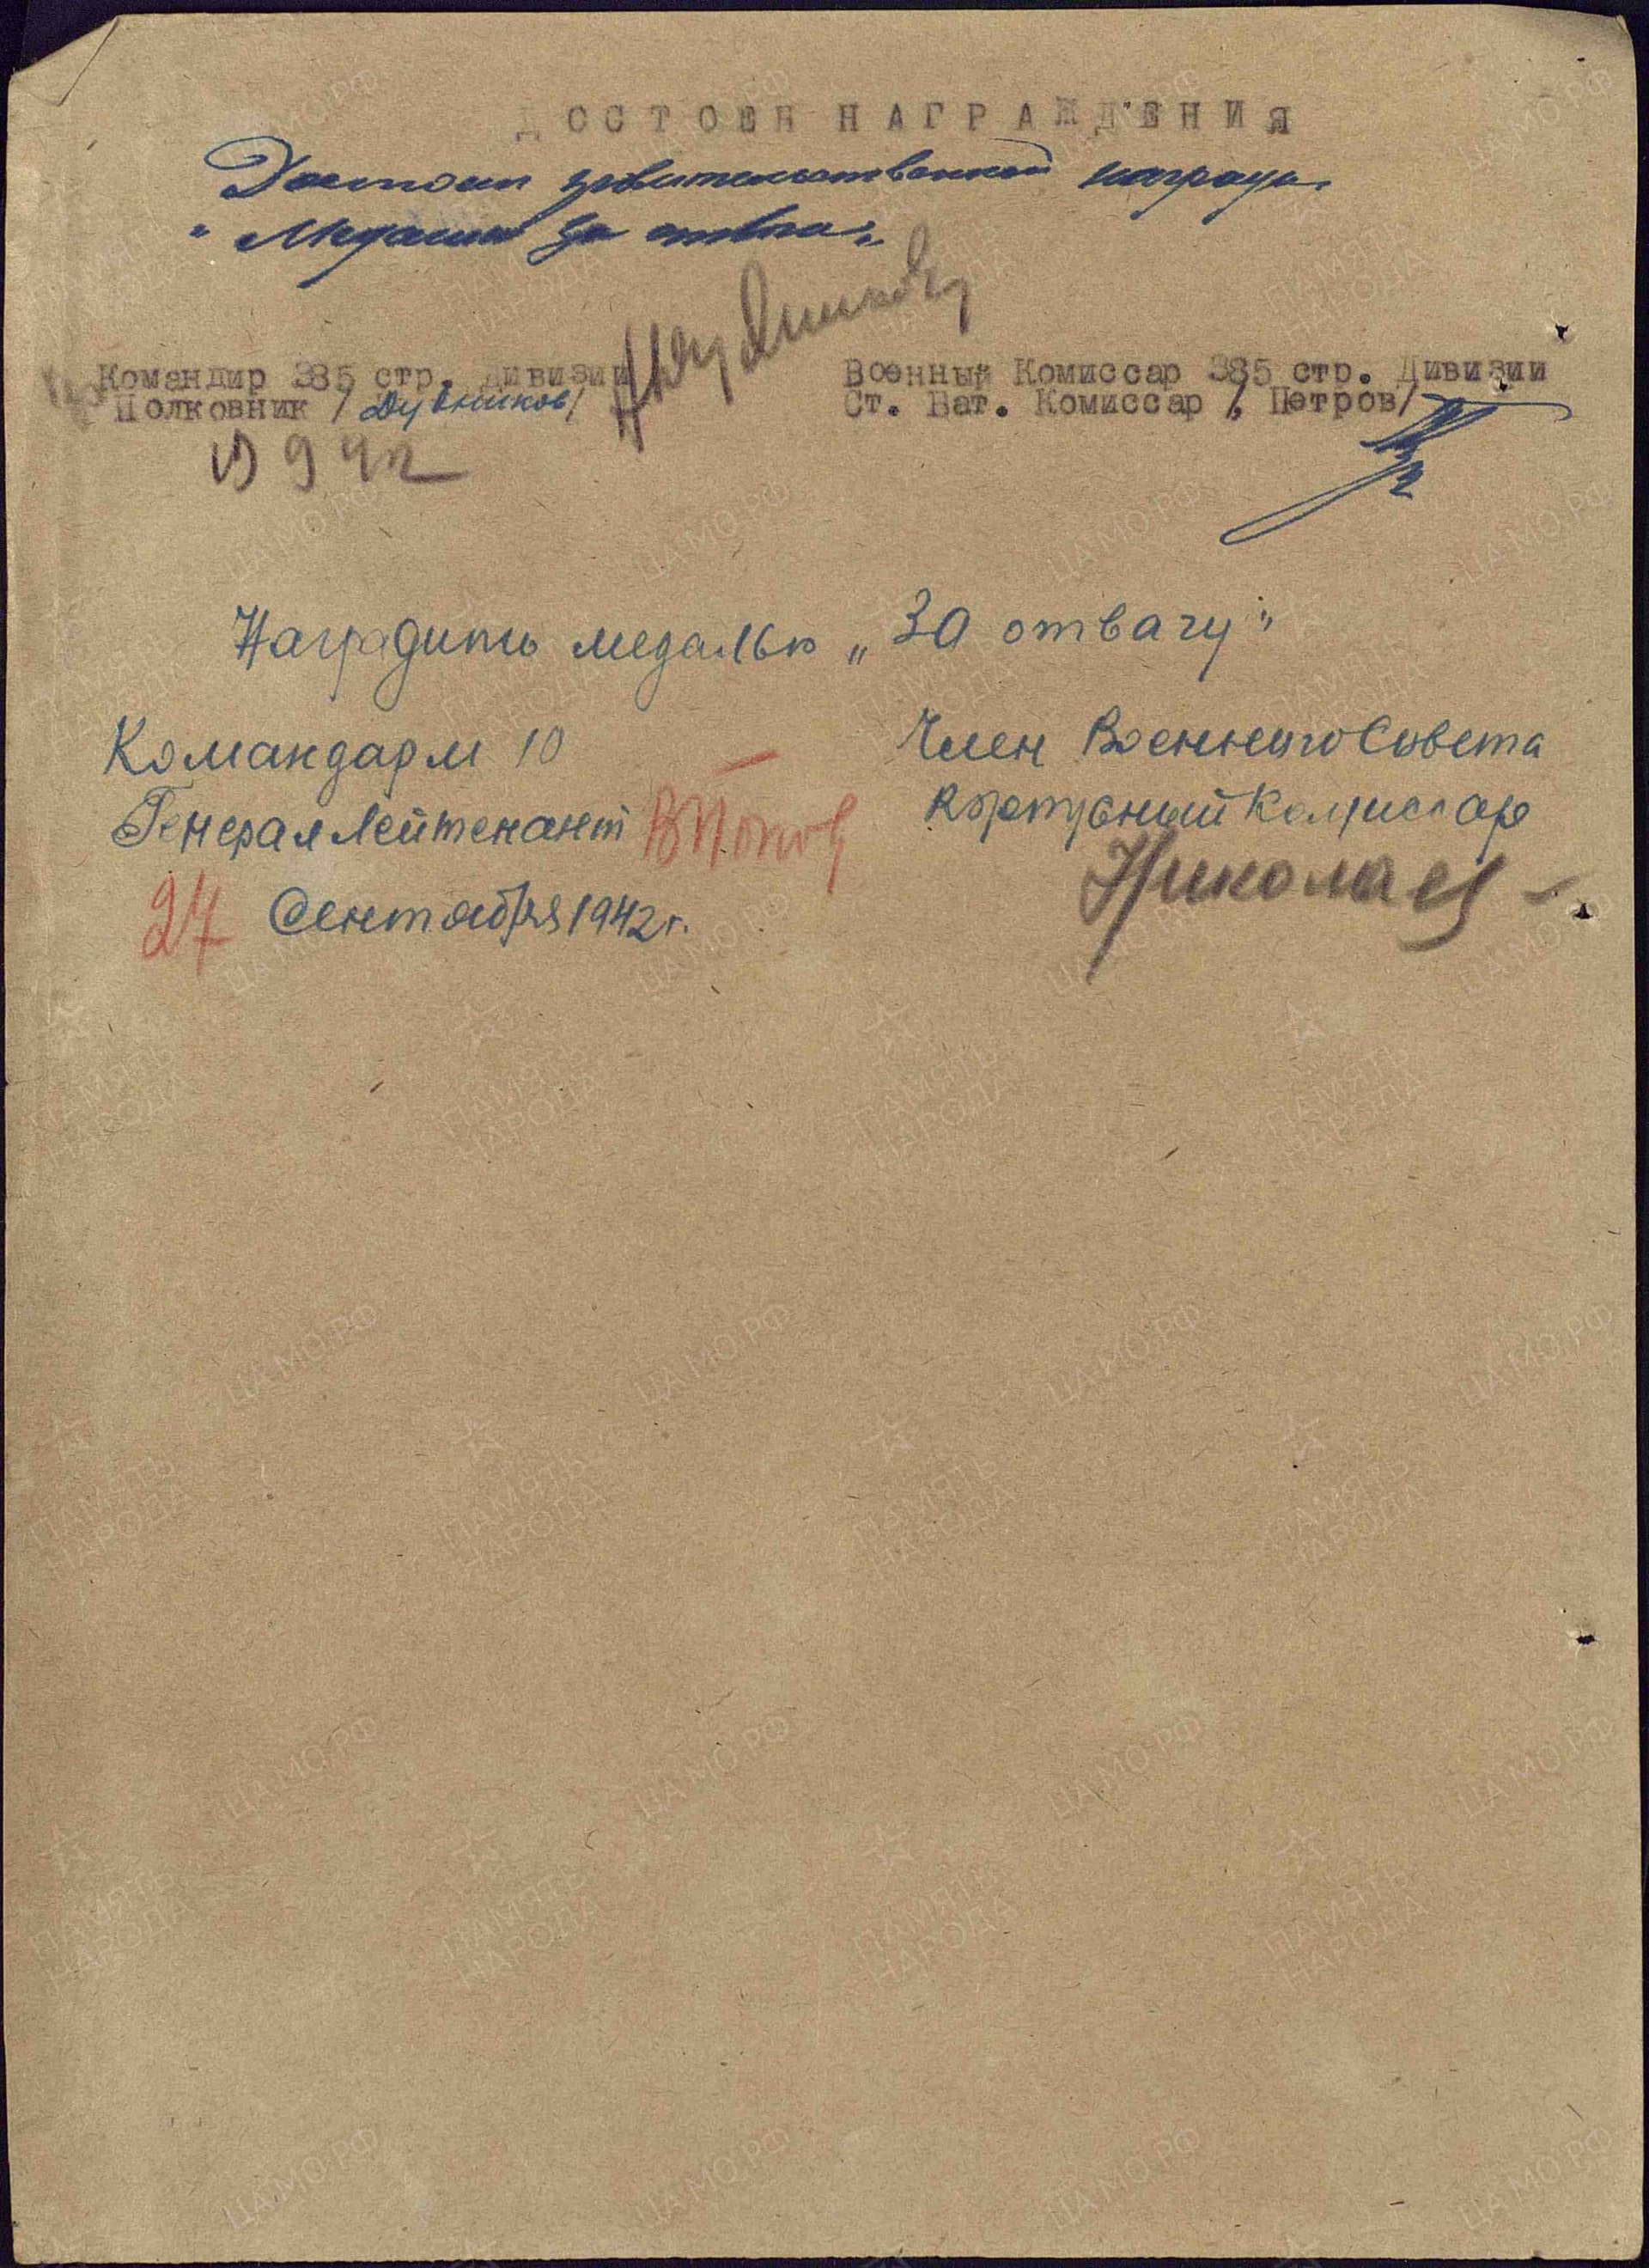 ДОСТОЕН НАГРАЖДЕНИЯ
Достоин правительственной награды
"Медали за отвагу"
Командир 385 стр. Дивизии
Полковник / /
Военный Комиссар 385 стр. Дивизии
Ст. Бат. Комиссар / Петров/
9 42
Наградить медалью „За отвагу"
Командарм 10
Генерал Лейтенант ВПопов
27 Сентября 1942 г.
Член Военного Совета
Корпусный Комиссар
Николаев